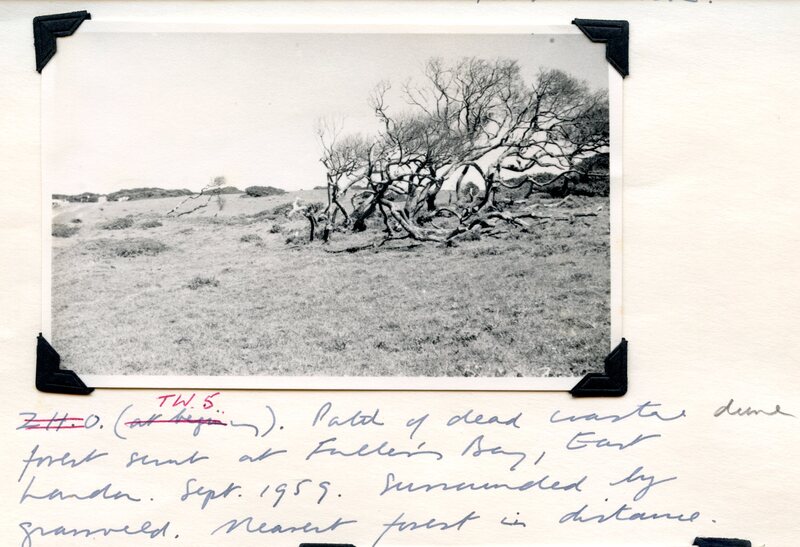 T.W. 5.
Z.H.O. (at beginning). Patch of dead coastal dune
forest scrub at Fuller's Bay, East
London. Sept. 1959. Surrounded by
grassveld. Nearest forest in distance.